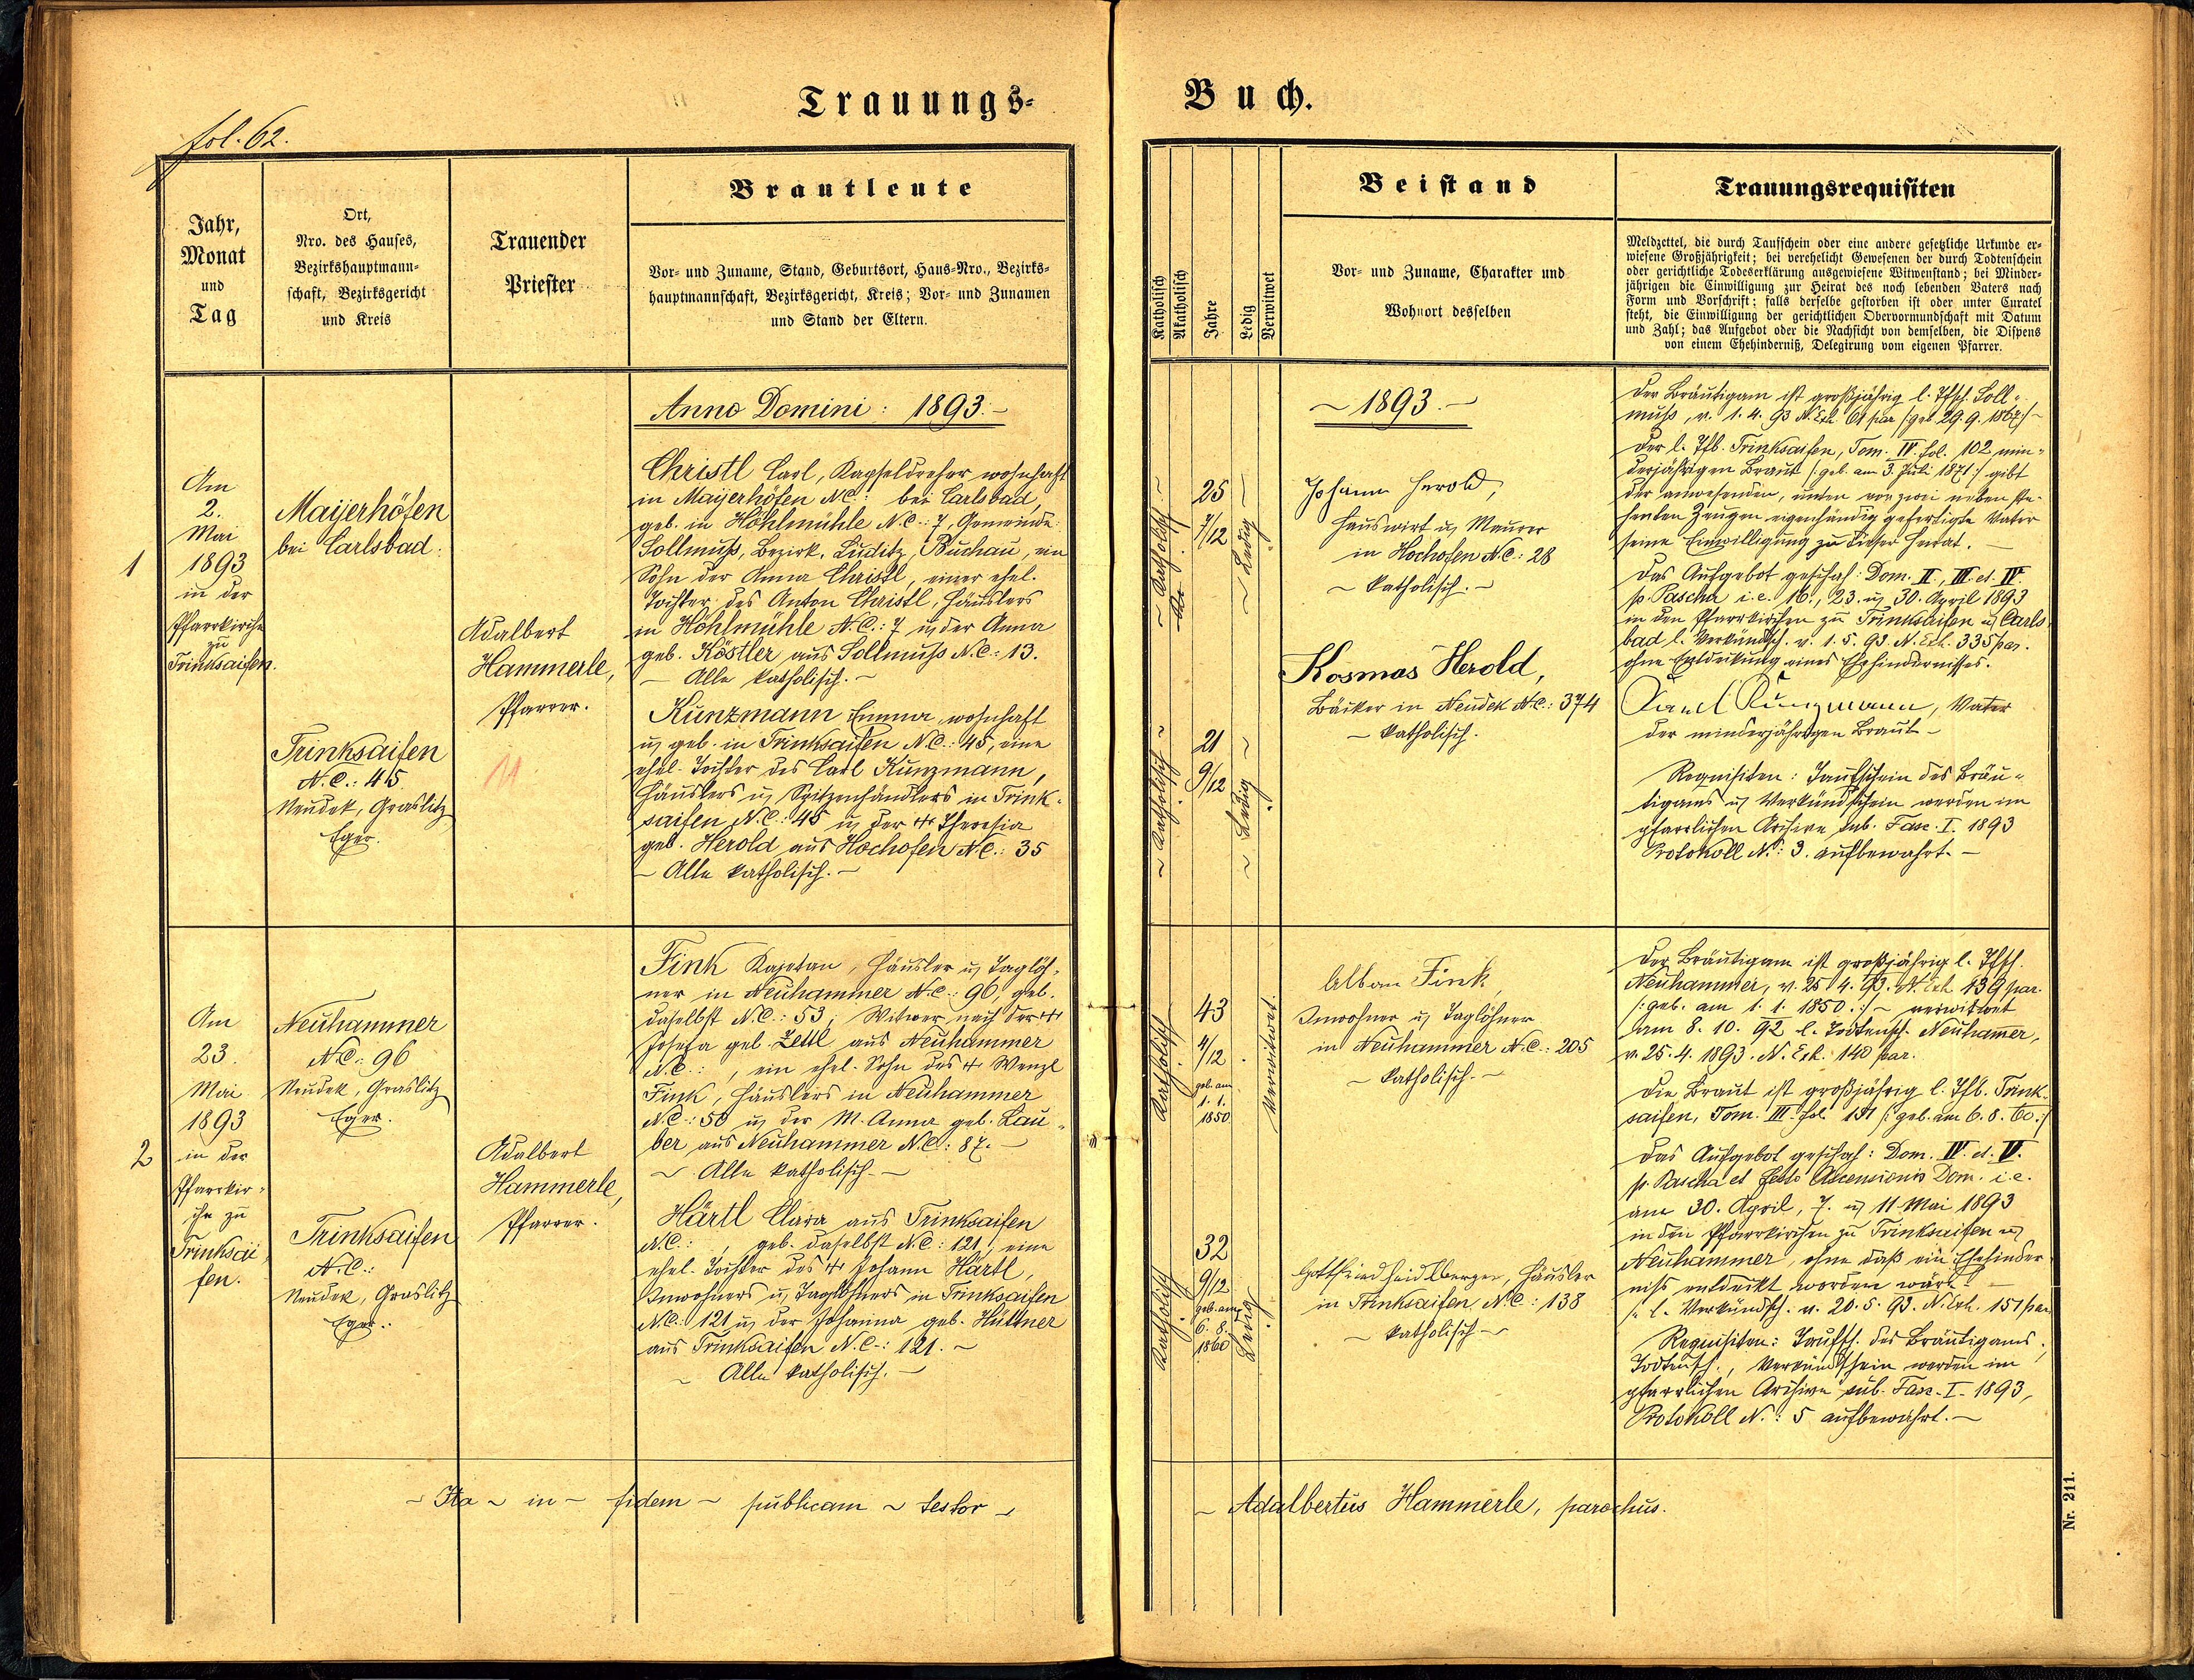 Trauungs-
Buch.
fol. 62.
Jahr,
Monat
und
Tag
Ort,
Nro. des Hauses,
Bezirkshauptmann-
schaft, Bezirksgericht
und Kreis
Trauender
Priester
Brautleute
Vor- und Zuname, Stand, Geburtsort, Haus-Nro., Bezirks-
hauptmannschaft, Bezirksgericht, Kreis; Vor- und Zunamen
und Stand der Eltern.
Anno Domini: 1893.-
1
Am
2.
Mai
1893
in der
Pfarrkirche
zu
Trinksaifen.
Maijerhöfen
bei Carlsbad.
Trinksaifen
N.C.: 45
Neudek, Graslitz
Eger.
Adalbert
Hammerle,
Pfarrer.
11
Christl Carl, Kapseldreher wohnhaft
in Maijerhöfen NC.: bei Carlsbad,
geb. in Höhlmühle N.C.: 7, Gemeinde
Sollmuß, Bezirk. Luditz, Buchau, ein
Sohn der Anna Christl, einer ehel.
Tochter des Anton Christl, Häuslers
in Höhlmühle N.C.: 7 u der Anna
geb. Köstler aus Sollmuß N.C.: 13.
- Alle katholisch. -
Kunzmann Emma, wohnhaft
u geb. in Trinksaifen N.C.: 45, eine
ehel. Tochter des Carl Kunzmann,
Häuslers u Spitzenhändlers in Trink-
saifen N.C.: 45 u der Theresia
geb. Herold aus Hochofen N.C.: 35
- Alle katholisch. -
2
Am
23.
Mai
1893
in der
Pfarrkir-
che zu
Trinksai-
fen.
Neuhammer
N.C.: 96
Neudek, Graslitz
Eger.
Trinksaifen
N.C.:
Neudek, Graslitz
Eger.
Adalbert
Hammerle,
Pfarrer.
Fink Kajetan, Häusler u Taglöh-
ner in Neuhammer N.C.: 96, geb.
daselbst N.C.: 53; Witwer nach der
Josefa geb. Zettl aus Neuhammer
N.C.: , ein ehel. Sohn des Wenzl
Fink, Häuslers in Neuhammer
N.C.: 50 u der M. Anna geb. Lau-
ber aus Neuhammer N.C.: 87. -
~ Alle katholisch. -
Härtl Clara aus Trinksaifen
N.C.: , geb. daselbst N.C.: 121, eine
ehel. Tochter des Johann Härtl,
Inwohners u Taglöhners in Trinksaifen
N.C.: 121 u der Johanna geb. Hüttner
aus Trinksaifen N.C.: 121. ~
~ Alle katholisch. -
~ Ita ~ in - fidem ~ publicam ~ testor ~
Katholisch
Akatholisch
Jahre
Ledig
Verwitwet
Beistand
Vor- und Zuname, Charakter und
Wohnort desselben
Trauungsrequisiten
Meldzettel, die durch Taufschein oder eine andere gesetzliche Urkunde er-
wiesene Großjährigkeit; bei verehelicht Gewesenen der durch Todtenschein
oder gerichtliche Todeserklärung ausgewiesene Witwenstand; bei Minder-
jährigen die Einwilligung zur Heirat des noch lebenden Vaters nach
Form und Vorschrift; falls derselbe gestorben ist oder unter Curatel
steht, die Einwilligung der gerichtlichen Obervormundschaft mit Datum
und Zahl; das Aufgebot oder die Nachsicht von demselben, die Dispens
von einem Ehehinderniß, Delegirung vom eigenen Pfarrer.
~ 1893. ~
~ Katholisch. ~
25
7/12
~ Ledig ~
Johann Herold,
Hauswirt u Maurer
in Hochofen N.C.: 28
~ katholisch. ~
~ Katholisch ~
21
9/12
~ Ledig ~
Kosmas Herold,
Bäcker in Neudek N.C.: 374
~ katholisch.
Der Bräutigam ist großjährig l. Tfsch. Soll-
muß, v. 1. 4. 93 N. Exh. 61 par /geb 29. 9. 1867/ ~
Der l. Tfb. Trinksaifen, Tom. IV. fol. 102 min-
derjährigen Braut /: geb. am 3. Juli 1871 :/ gibt
der anwesenden, unten von zwei neben ste-
henden Zeugen eigenhändig gefertigte Vater
seine Einwilligung zu dieser Heirat. -
Das Aufgebot geschah: Dom. II., III. et IV.
p. Pascha i.e. 16., 23. u 30. April 1893
in den Pfarrkirchen zu Trinksaifen u Carls-
bad l. Verkündsch. v. 1. 5. 93. N. Exh. 335 par.
ohne Entdeckung eines Ehehindernisses.
Karl Kunzmann, Vater
der minderjährigen Braut -
Requisiten: Taufschein des Bräu-
tigams u Verkündschein werden im
pfarrlichen Archive sub. Fasc. I. 1893
Protokoll N.: 3. aufbewahrt. -
Katholisch
43
4/12
geb. am
1. 1.
1850
Verwitwet.
Alban Fink,
Inwohner u Taglöhner
in Neuhammer N.C.: 205
~ katholisch. ~
Katholisch
32
9/12
geb. am
6. 8.
1860
Ledig
Gottfried Heidlberger, Häusler
in Trinksaifen N.C.: 138
~ katholisch ~
Der Bräutigam ist großjährig l. Tfsch.
Neuhammer, v. 25. 4. 93. N. Exh. 139 par.
/: geb. am 1. 1. 1850 :/ ~ verwitwet
am 8. 10. 92 l. Todtensch. Neuhamer,
v. 25. 4. 1893. N. Exh. 140 par.
Die Braut ist großjährig l. Tfb. Trink-
saifen, Tom. III. fol. 151 /: geb. am 6. 8. 60 :/
Das Aufgebot geschah: Dom. IV. et V.
p. Pascha et festo Ascensionis Dom. i.e.
am 30. April, 7. u 11 Mai 1893
in den Pfarrkirchen zu Trinksaifen u
Neuhammer, ohne daß ein Ehehinder-
niß entdeckt worden wäre. -
/: l. Verkündsch. v. 20. 5. 93. N. Exh. 151 par
Requisiten: Taufsch. des Bräutigams,
Todtensch., Verkündschein werden im
pfarrlichen Archive sub. Fasc. I. 1893,
Protokoll N.: 5 aufbewahrt. -
~ Adalbertus Hammerle, parochus.
Nr. 211.